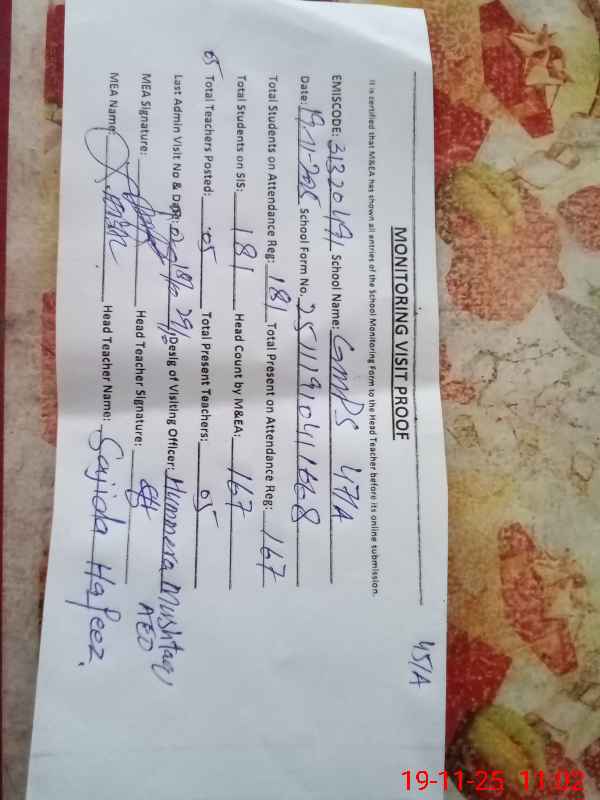 45/A
MONITORING VISIT PROOF
It is certified that M&EA has shown all entries of the School Monitoring Form to the Head Teacher before its online submission.
EMISCODE: 31320491 School Name: GMPS 47/A
Date: 19-11-2025 School Form No. 2511191041668
Total Students on Attendance Reg: 181 Total Present on Attendance Reg: 167
Total Students on SIS: 181 Head Count by M&EA: 167
05 Total Teachers Posted: 05 Total Present Teachers: 05
Last Admin Visit No & Date: Desig of Visiting Officer: Mushtaq AEO
MEA Signature: Head Teacher Signature:
MEA Name: Head Teacher Name: Sajida Hafeez.
19-11-25 11:02